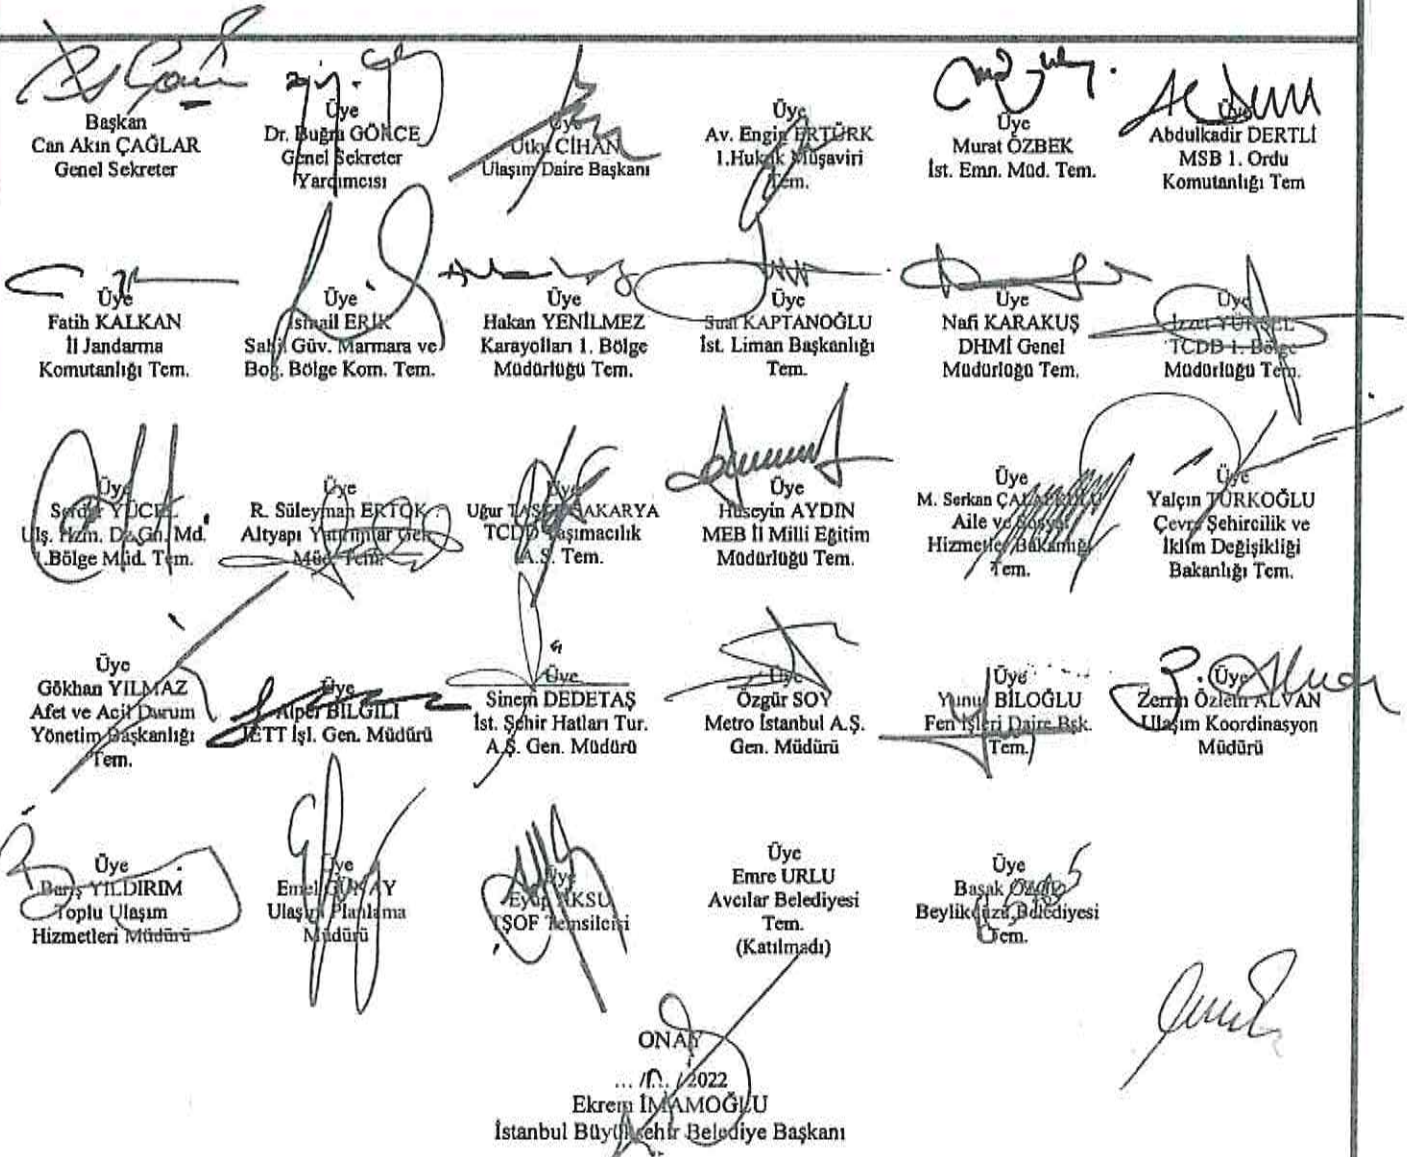 Başkan
Can Akın ÇAĞLAR
Genel Sekreter
Üye
Dr. Buğra GÖKCE
Genel Sekreter
Yardımcısı
Üye
Utku CİHAN
Ulaşım Daire Başkanı
Üye
Av. Engin ERTÜRK
1.Hukuk Müşaviri
Tem.
Üye
Murat ÖZBEK
İst. Emn. Müd. Tem.
Üye
Abdulkadir DERTLİ
MSB 1. Ordu
Komutanlığı Tem
Üye
Fatih KALKAN
İl Jandarma
Komutanlığı Tem.
Üye
İsmail ERİK
Sahil Güv. Marmara ve
Boğ. Bölge Kom. Tem.
Üye
Hakan YENİLMEZ
Karayolları 1. Bölge
Müdürlüğü Tem.
Üye
KAPTANOĞLU
İst. Liman Başkanlığı
Tem.
Üye
Nafi KARAKUŞ
DHMİ Genel
Müdürlüğü Tem.
Üye
İzzet
TCDD 1. Bölge
Müdürlüğü Tem.
Üye
YÜCEL
Ulş. Hzm. Dz.Gn. Md.
1.Bölge Müd. Tem.
Üye
R. Süleyman ERTOK
Altyapı Yatırımlar Gen.
Müd. Tem.
Üye
Uğur SAKARYA
TCDD Taşımacılık
A.Ş. Tem.
Üye
Hüseyin AYDIN
MEB İl Milli Eğitim
Müdürlüğü Tem.
Üye
M. Serkan
Aile ve Sosyal
Hizmetler Bakanlığı
Tem.
Üye
Yalçın TÜRKOĞLU
Çevre Şehircilik ve
İklim Değişikliği
Bakanlığı Tem.
Üye
Gökhan YILMAZ
Afet ve Acil Durum
Yönetim Başkanlığı
Tem.
Üye
Alper BİLGİLİ
İETT İşl. Gen. Müdürü
Üye
Sinem DEDETAŞ
İst. Şehir Hatları Tur.
A.Ş. Gen. Müdürü
Üye
Özgür SOY
Metro İstanbul A.Ş.
Gen. Müdürü
Üye
Yunus BİLOĞLU
Fen İşleri Daire Bşk.
Tem.
Üye
Zerrin Özlem ALVAN
Ulaşım Koordinasyon
Müdürü
Üye
Barış YILDIRIM
Toplu Ulaşım
Hizmetleri Müdürü
Üye
Emel GÜNAY
Ulaşım Planlama
Müdürü
Üye
Eyüp AKSU
TŞOF Temsilcisi
Üye
Emre URLU
Avcılar Belediyesi
Tem.
(Katılmadı)
Üye
Başak
Beylikdüzü Belediyesi
Tem.
ONAY
... /.... /2022
Ekrem İMAMOĞLU
İstanbul Büyükşehir Belediye Başkanı